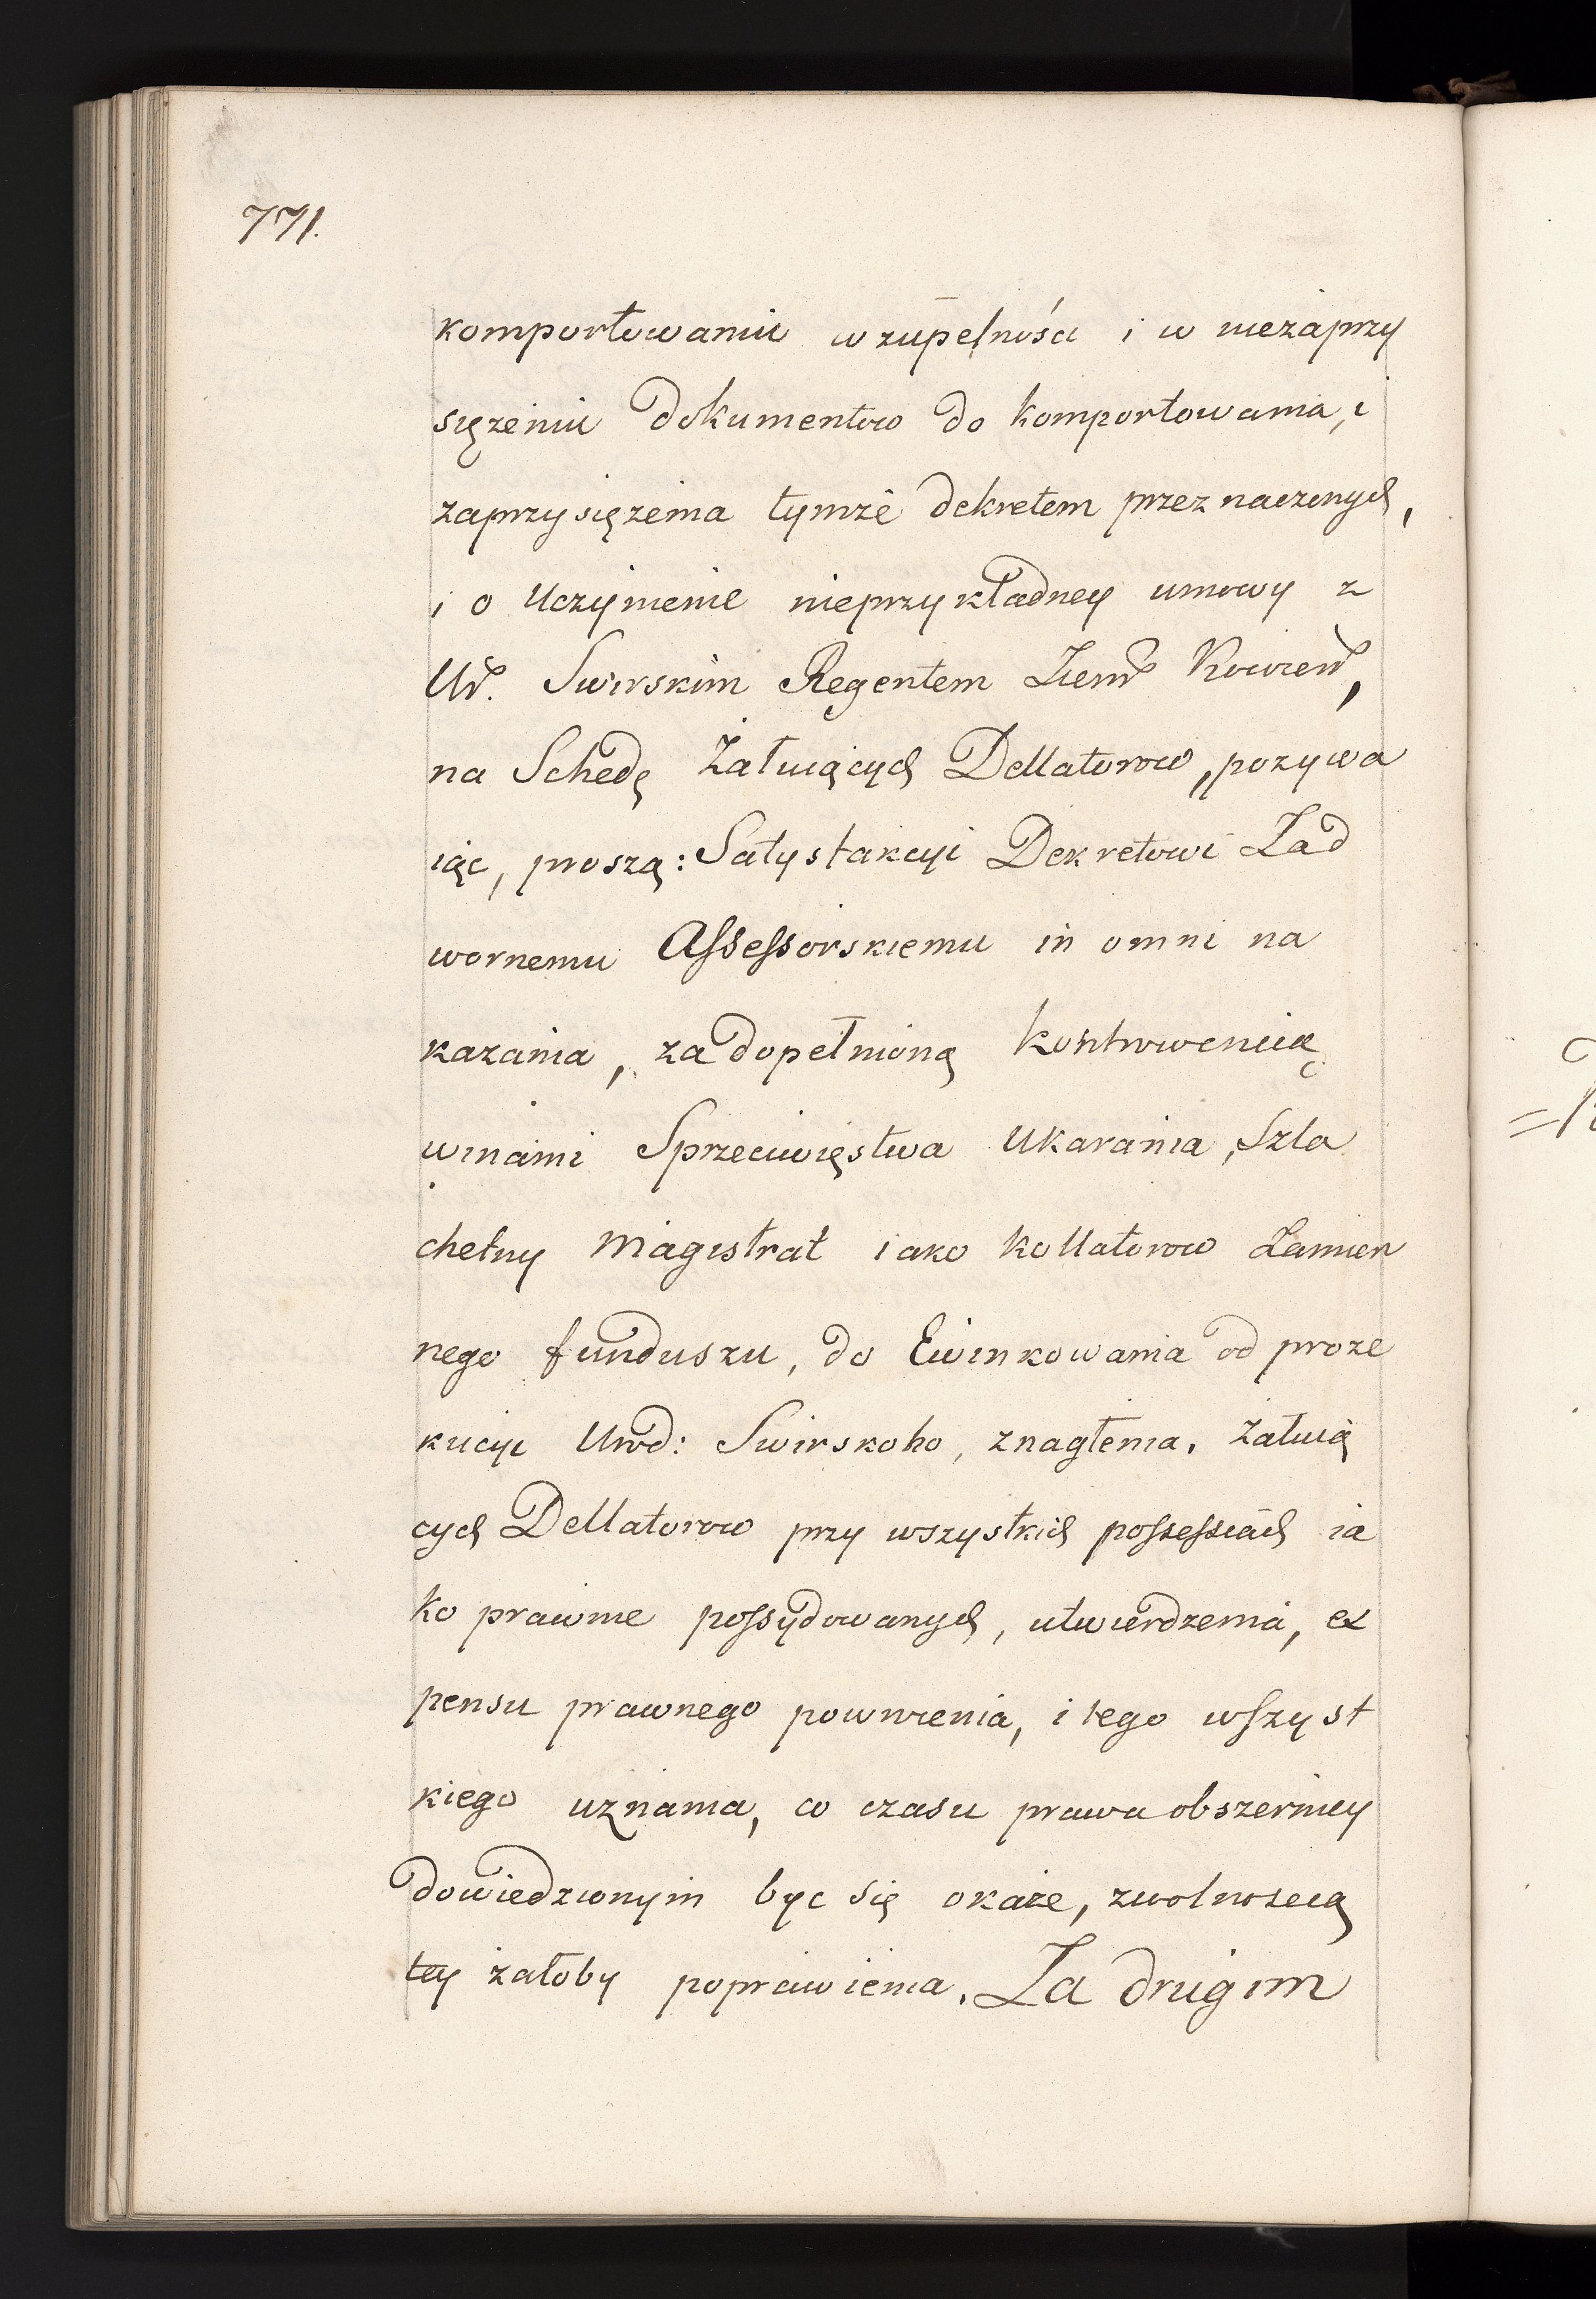 771.
komportowaniu w zupełności i w niezaprzy
siężeniu dokumentow do komportowania, i
zaprzysiężenia tymże dekretem przeznaczonych,
i o Uczynienie nieprzykładney umowy z
Ur. Swirskim Regentem Ziem Kowień,
na Schedę Żałuiących Dellatorow, pozywa
iąc, proszą: Satysfakcyi Dekretowi Zad
wornemu Assessorskiemu in omni na
kazania, za dopełnioną kontrwencią
winami Sprzeciwięstwa Ukarania, Szla
chetny Magistrat iako kollatorow Zamien
nego funduszu, do Ewinkowania od proze
kucyi Urod: Swirskoho, znaglenia, Żałuią
cych Dellatorow przy wszystkich possessiach ia
ko prawnie possydowanych, utwierdzenia, ex
pensu prawnego powrucenia, i tego wszyst
kiego uznania, co czasu prawa obszerniey
dowiedzionym byc się okaże, zwolnoscią
tey żałoby poprawienia. Za drugim